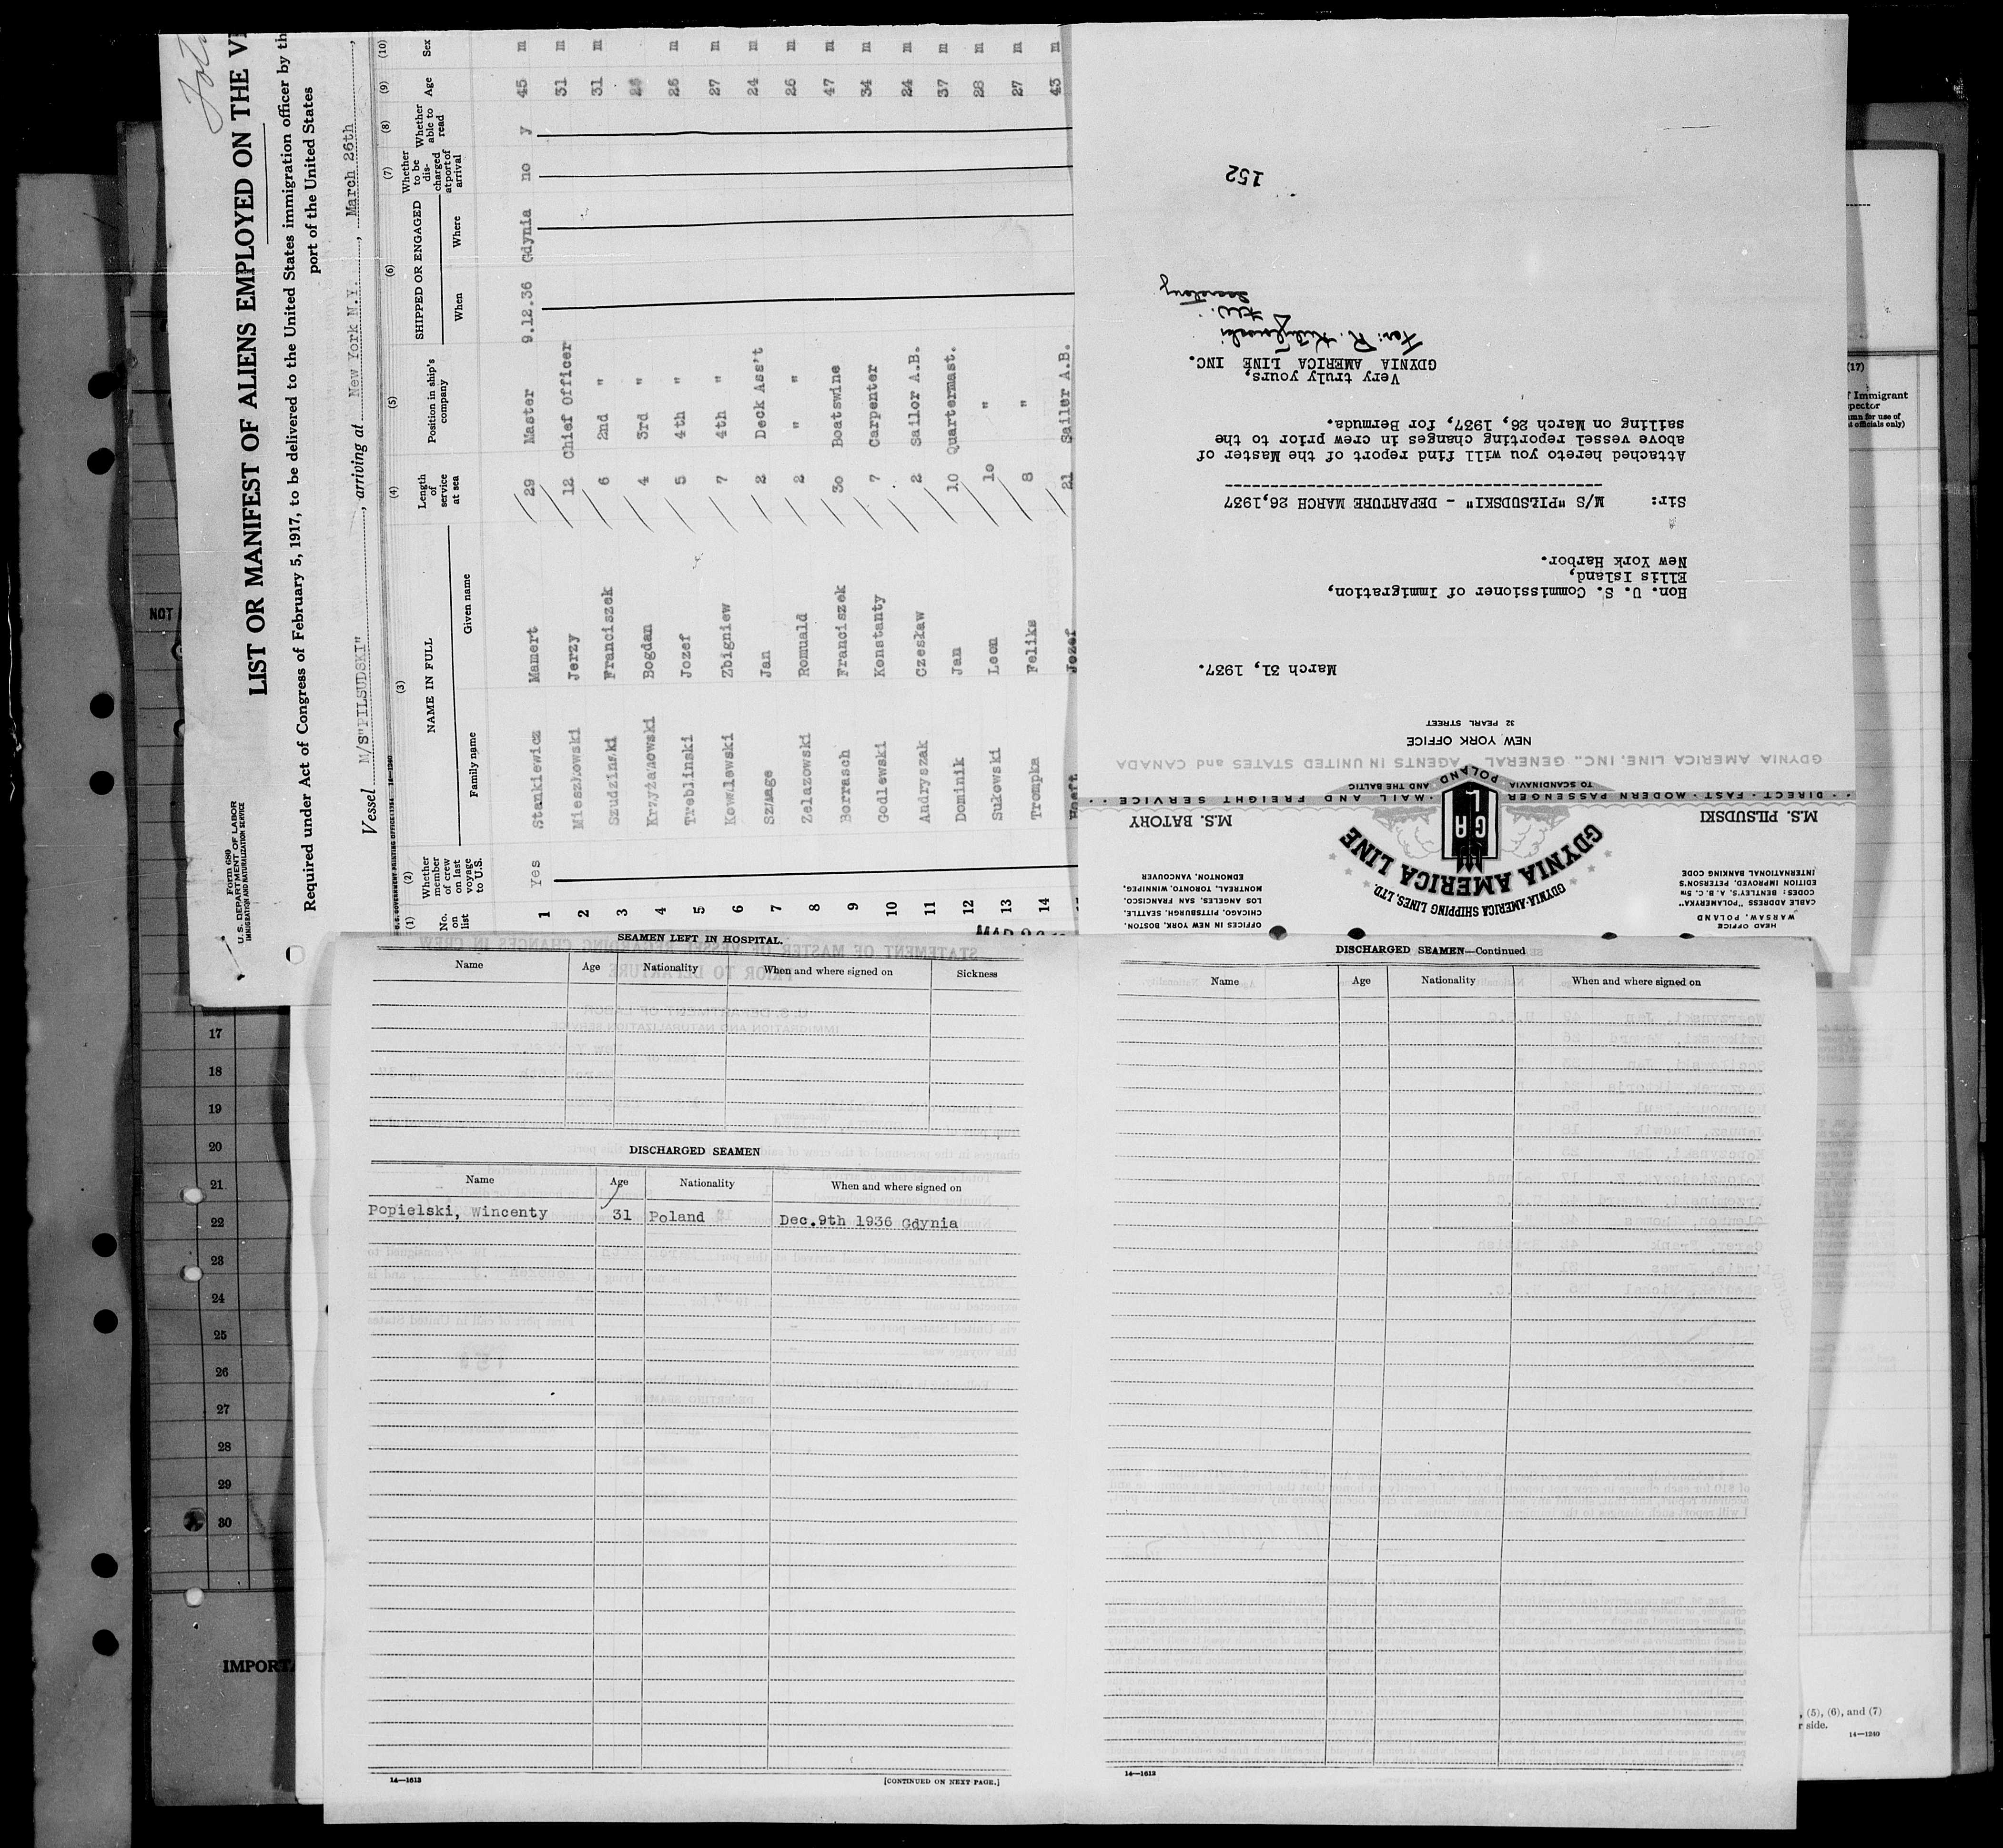 Form 680
U. S. DEPARTMENT OF LABOR
IMMIGRATION AND NATURALIZATION SERVICE
LIST OR MANIFEST OF ALIENS EMPLOYED ON THE
Required under Act of Congress of February 5, 1917, to be delivered to the United States immigration officer by th
port of the United States
Vessel M/S"PILSUDSKI", arriving at New York N.Y., March 26th,
(1) (2) (3) (4) (5) (6) (7) (8) (9) (10)
No. on list
Whether member of crew on last voyage to U.S.
NAME IN FULL
Family name Given name
Length of service at sea
Position in ship's company
SHIPPED OR ENGAGED
When Where
Whether to be discharged at port of arrival
Whether able to read
Age
Sex
1 Yes Stankiewicz Mamert 29 Master 9.12.36 Gdynia no y 45 m
2 Mieszkowski Jerzy 12 Chief Officer 31 m
3 Szudzinski Franciszek 6 2nd " 31 m
4 Krzyżanowski Bogdan 4 3rd "
5 Treblinski Jozef 5 4th " 26 m
6 Kowalewski Zbigniew 7 4th " 27 m
7 Szmage Jan 2 Deck Ass't 24 m
8 Zelazowski Romuald 2 " " 26 m
9 Borrasch Franciszek 30 Boatswine 47 m
10 Godlewski Konstanty 7 Carpenter 34 m
11 Andryszak Czesław 2 Sailor A.B. 24 m
12 Dominik Jan 10 Quartermast. 37 m
13 Sukowski Leon 10 " 28 m
14 Trompka Feliks 8 " 27 m
Jozef 21 Sailer A.B. 43 m
HEAD OFFICE
WARSAW, POLAND
CABLE ADDRESS "POLAMERYKA"
CODES: BENTLEY'S, A. B. C. 5TH
EDITION IMPROVED, PETERSON'S
INTERNATIONAL BANKING CODE
GDYNIA-AMERICA SHIPPING LINES, LTD.
GDYNIA AMERICA LINE
GAL
OFFICES IN NEW YORK, BOSTON,
CHICAGO, PITTSBURGH, SEATTLE,
LOS ANGELES, SAN FRANCISCO,
MONTREAL, TORONTO, WINNIPEG,
EDMONTON, VANCOUVER
M.S. PILSUDSKI
M.S. BATORY
DIRECT · FAST · MODERN PASSENGER · MAIL AND FREIGHT SERVICE
TO SCANDINAVIA POLAND AND THE BALTIC
GDYNIA AMERICA LINE, INC., GENERAL AGENTS IN UNITED STATES and CANADA
NEW YORK OFFICE
32 PEARL STREET
March 31, 1937.
Hon. U. S. Commissioner of Immigration,
Ellis Island,
New York Harbor.
Sir: M/S "PIŁSUDSKI" - DEPARTURE MARCH 26,1937
Attached hereto you will find report of the Master of
above vessel reporting changes in crew prior to the
sailing on March 26, 1937, for Bermuda.
Very truly yours,
GDYNIA AMERICA LINE INC.
Secretary
152
SEAMEN LEFT IN HOSPITAL.
Name Age Nationality When and where signed on Sickness
DISCHARGED SEAMEN
Name Age Nationality When and where signed on
Popielski, Wincenty 31 Poland Dec.9th 1936 Gdynia
14—1613
[CONTINUED ON NEXT PAGE.]
DISCHARGED SEAMEN—Continued
Name Age Nationality When and where signed on
14—1613
17
18
19
20
21
22
23
24
25
26
27
28
29
30
IMPORTA
(17)
f Immigrant
pector
, (5), (6), and (7)
r side.
14—1240